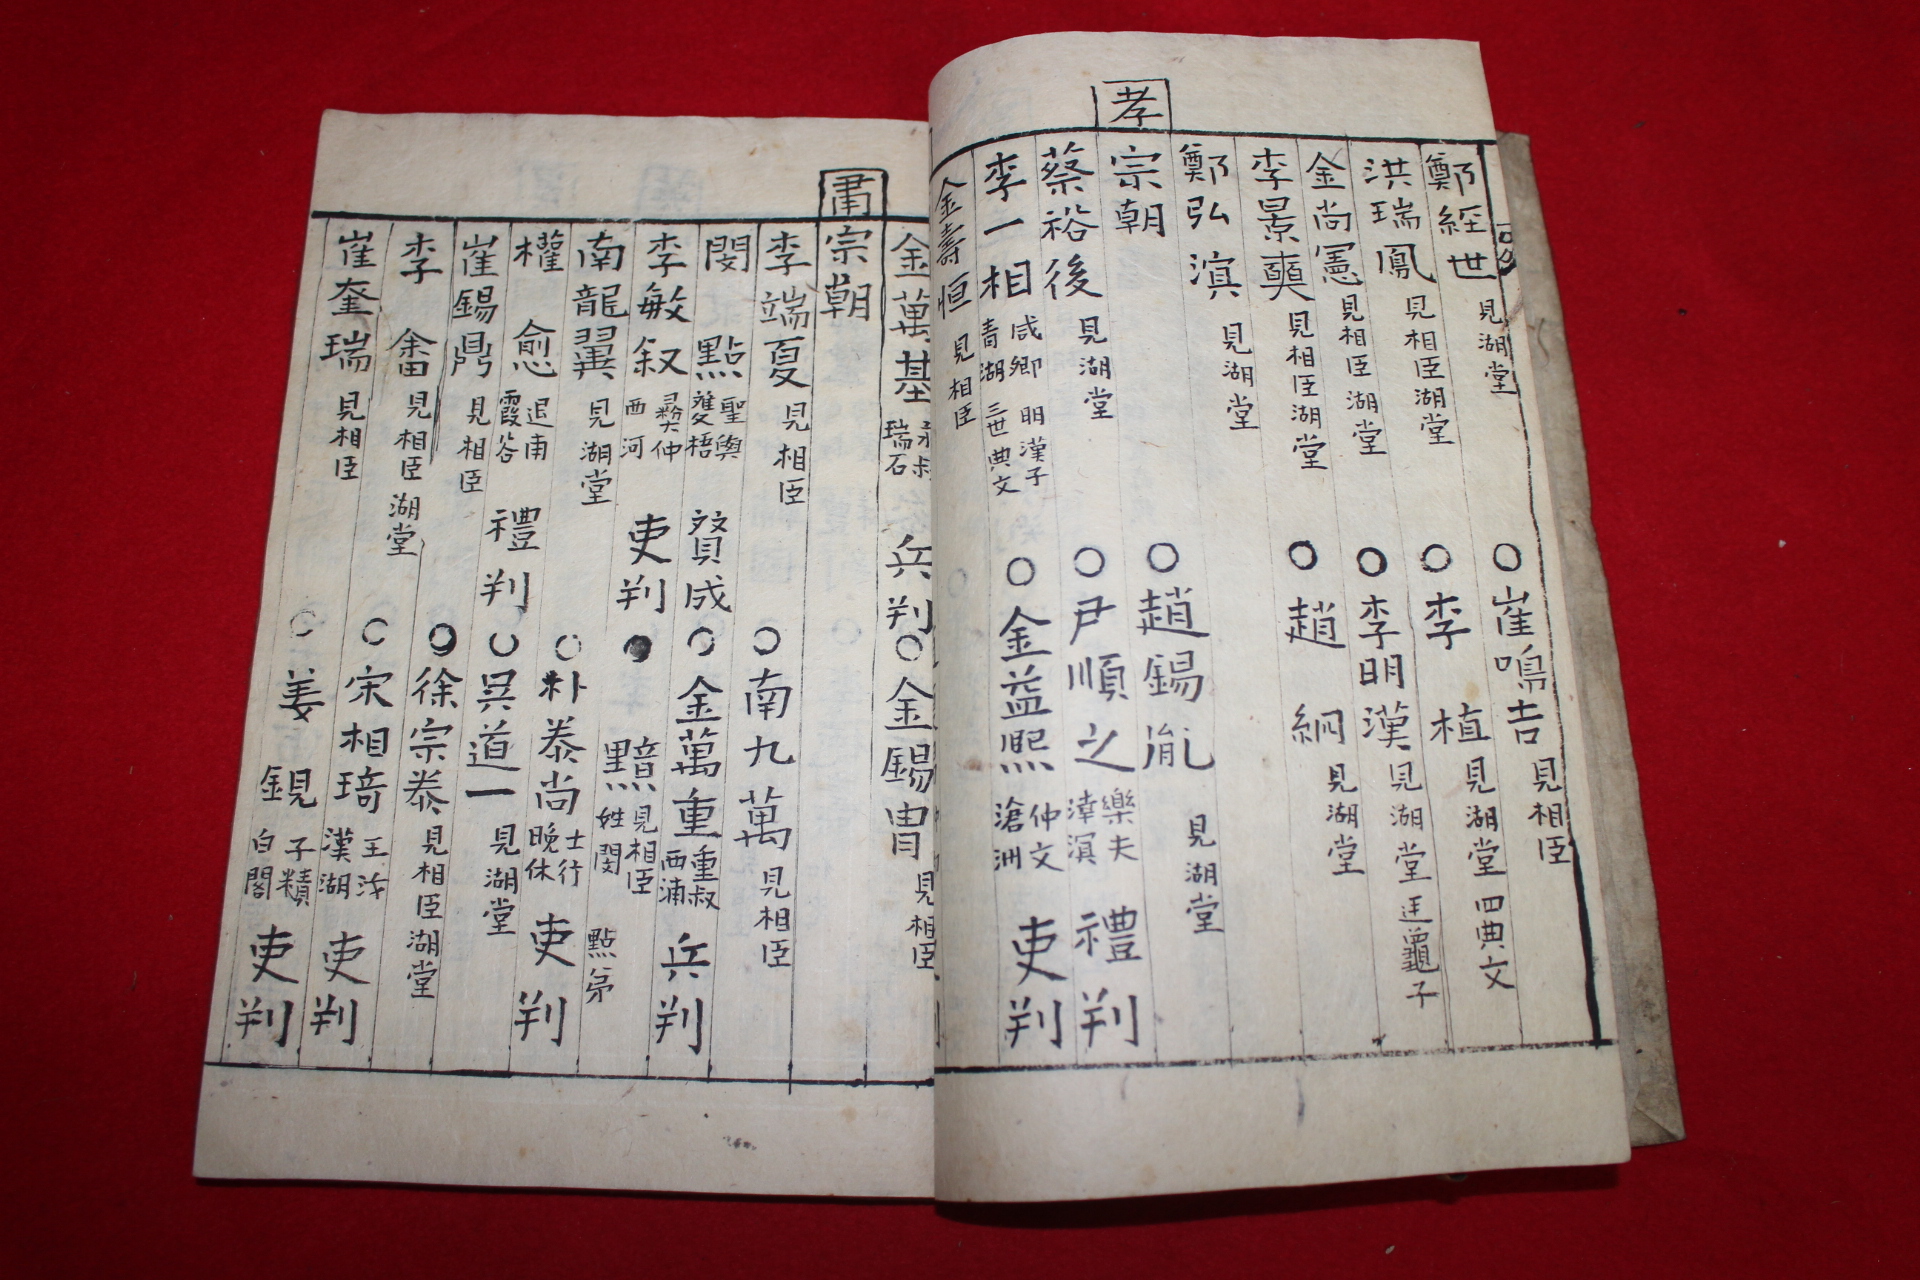 鄭經世 見湖堂 ○崔鳴吉 見相臣
洪瑞鳳 見相臣湖堂 ○李植 見湖堂 四典文
金尚憲 見相臣湖堂 ○李明漢 見湖堂 廷龜子
李景奭 見相臣湖堂 ○趙絅 見湖堂
鄭弘溟 見湖堂
孝宗朝 ○趙錫胤 見湖堂
蔡裕後 見湖堂 ○尹順之 樂夫 涬溟 禮判
李一相 咸卿 青湖 明漢子 三世典文 ○金益熙 仲文 滄洲 吏判
金壽恒 見相臣
金萬基 永叔 瑞石 兵判 ○金錫冑 見相臣
肅宗朝
李端夏 見相臣 ○南九萬 見相臣
閔點 聖與 雙梧 贊成 ○金萬重 重叔 西浦 兵判
李敏叙 彝仲 西河 吏判 ●黯 見相臣 姓閔 點弟
南龍翼 見湖堂 ○朴泰尚 士行 晚休 吏判
權愈 退南 霞谷 禮判 ○吳道一 見湖堂
崔錫鼎 見相臣 ○徐宗泰 見相臣湖堂
李畬 見相臣湖堂 ○宋相琦 玉汝 漢湖 吏判
崔奎瑞 見相臣 ○姜鋧 子精 白閣 吏判